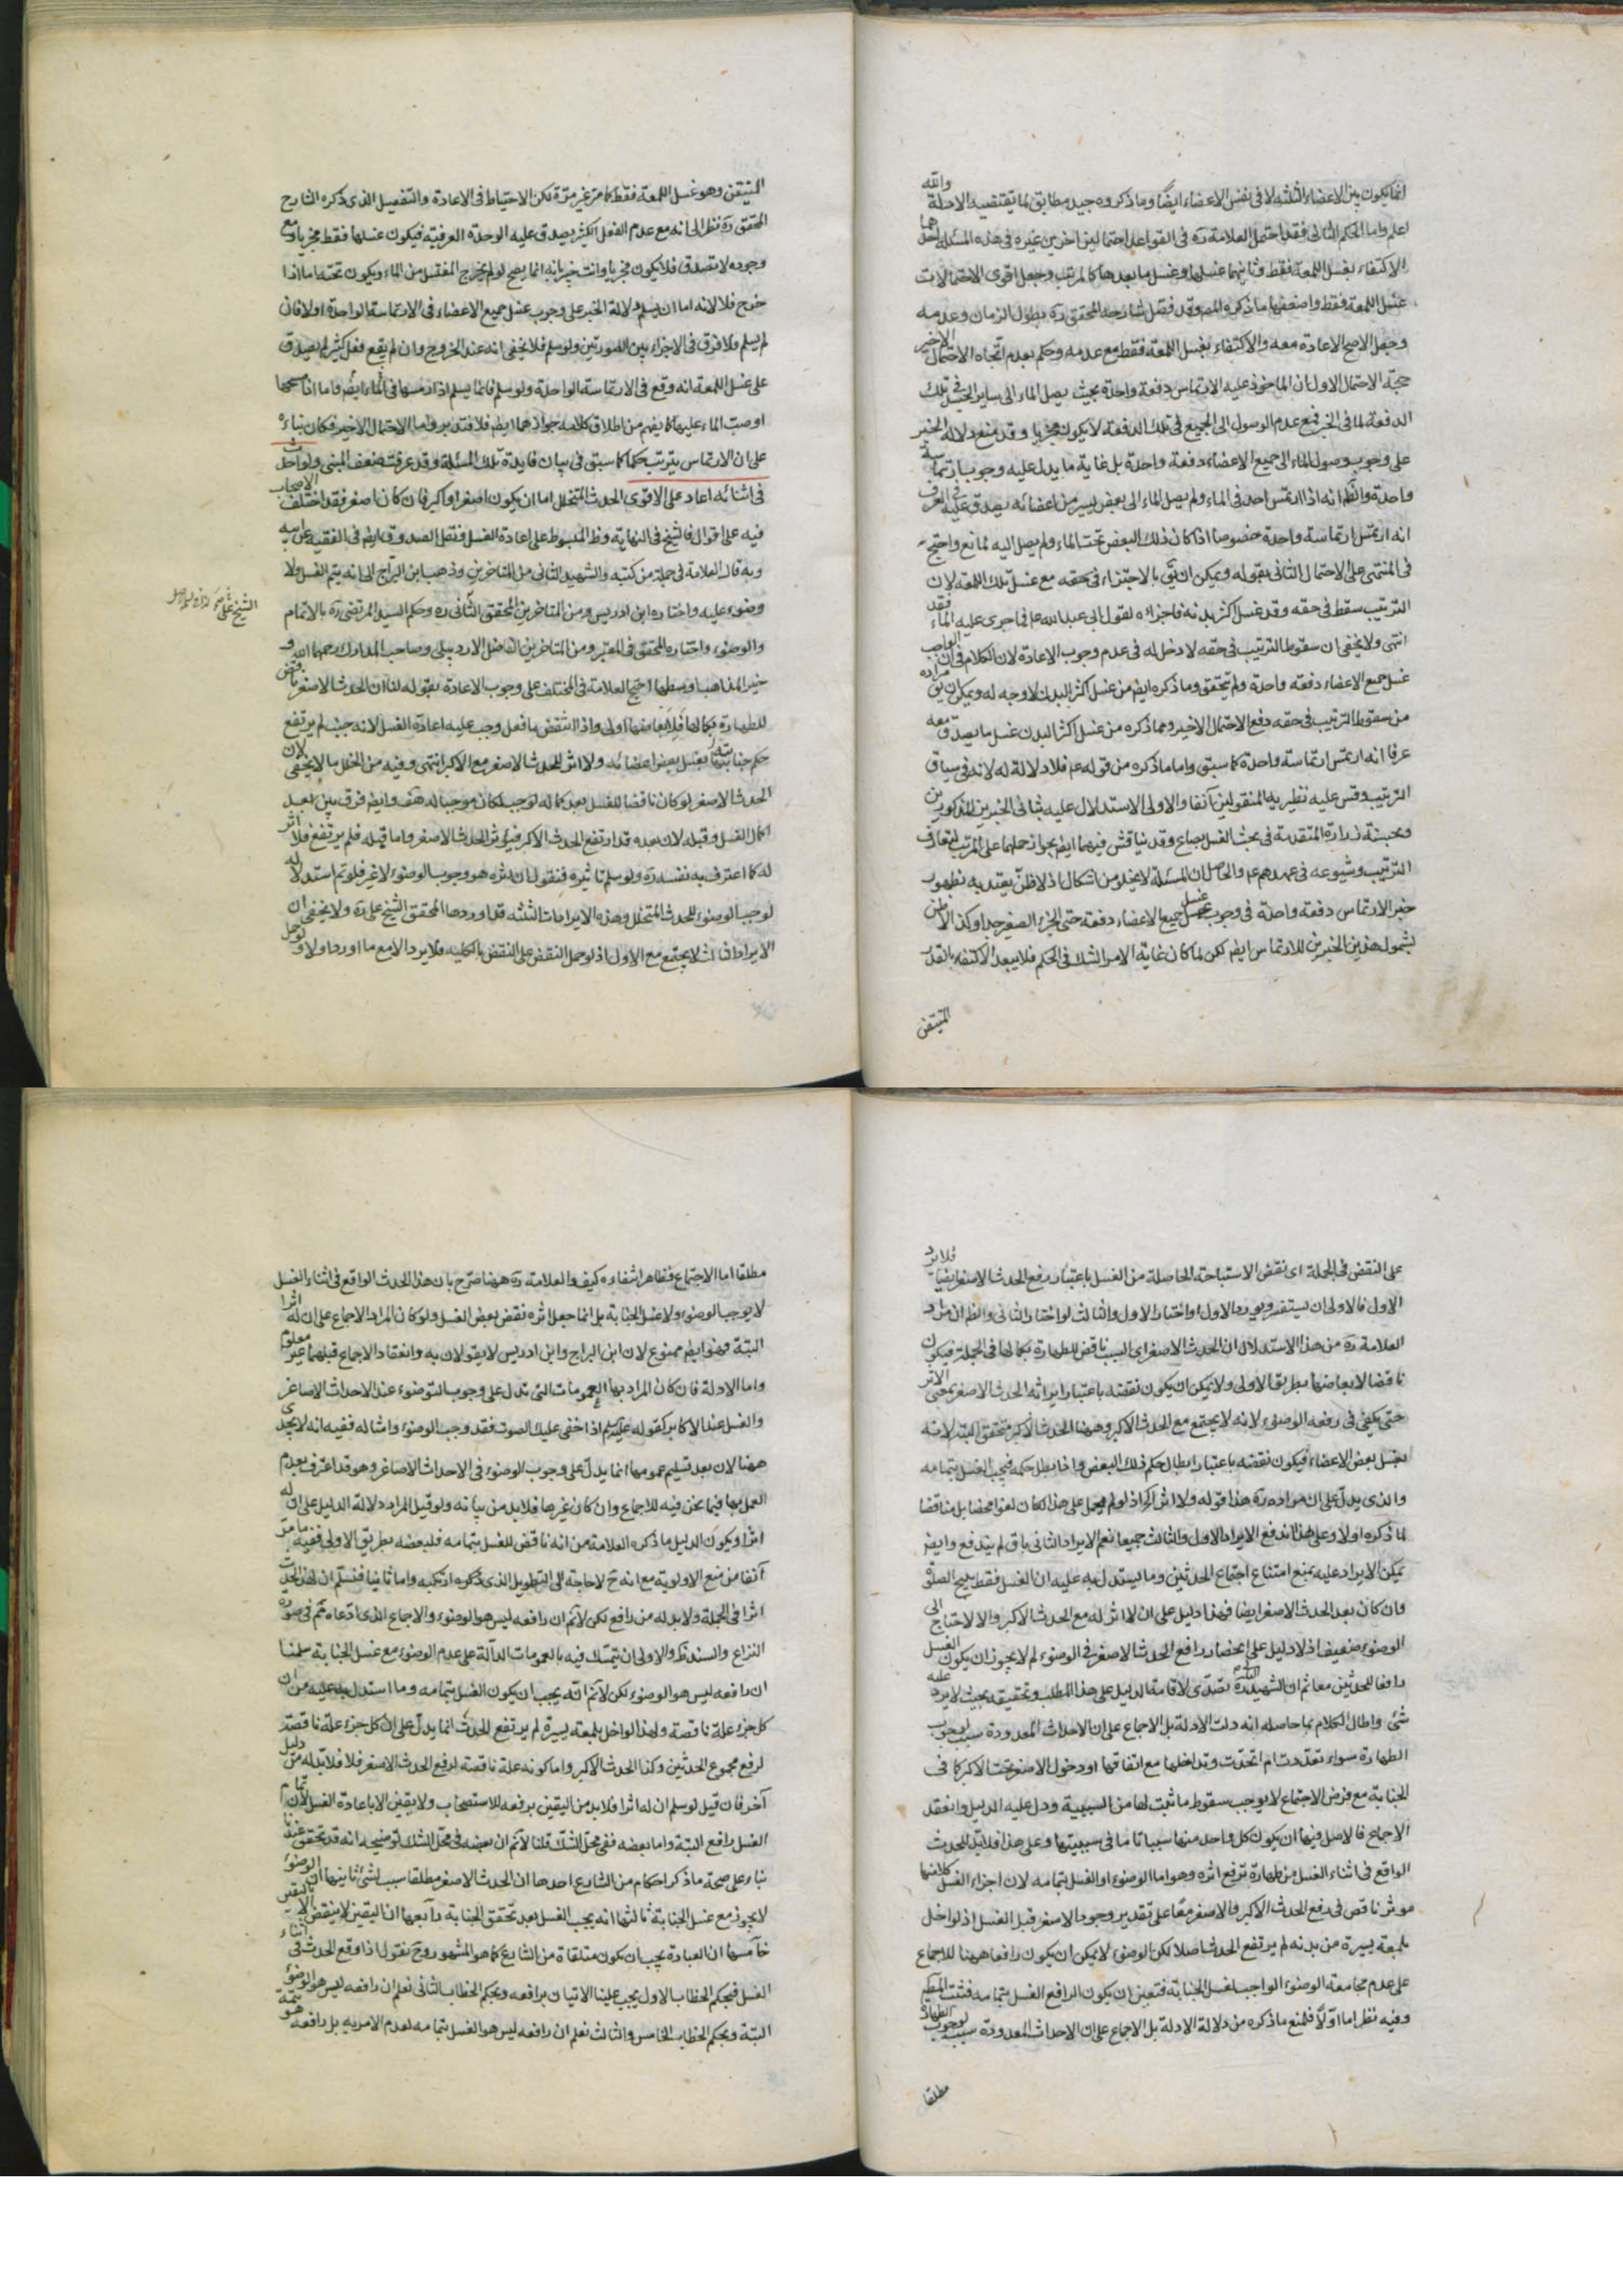 انما يكون بين الاعضاء الثلثه لا في نفس الاعضاء ايضا وما ذكروه جيد مطابق لما يقتضيه الادلة والله
اعلم واما الحكم الثاني فقد احتمل العلامة ره في القواعد احتمالين اخرين غيره في هذه المسئلة احدهما
الاكتفاء بغسل اللمعة فقط وثانيهما غسلها وغسل ما بعدها كالمرتب وجعل اقوى الاحتمالات
غسل اللمعة فقط واضعفها ما ذكره المص وقد فصل شارحه المحقق ره بطول الزمان وعدمه
وجعل الاصح الاعادة معه والاكتفاء بغسل اللمعة فقط مع عدمه وحكم بعدم اتجاه الاحتمال الاخير
حجة الاحتمال الاول ان الماخوذ عليه الارتماس دفعة واحدة بحيث يصل الماء الى ساير الجسد في تلك
الدفعة لما في الخبر فمع عدم الوصول الى الجميع في تلك الدفعة لا يكون مجزيا وقد منع دلالة الخبر
على وجوب وصول الماء الى جميع الاعضاء دفعة واحدة بل غاية ما يدل عليه وجوب ارتماسة
واحدة والظ انه اذا ارتمس احد في الماء ولم يصل الماء الى بعض يسير من اعضائه يصدق عليه في العرف
انه ارتمس ارتماسة واحدة خصوصا اذا كان ذلك البعض تحت الماء ولم يصل اليه لمانع واحتج
في المنتهى على الاحتمال الثاني بقوله ويمكن ان يق بالاجتزاء في حقه مع غسل تلك اللمعة لان
الترتيب سقط في حقه وقد غسل اكثر بدنه فاجزاه لقول ابي عبد الله ع فما جرى عليه الماء فقد
انتهى ولا يخفى ان سقوط الترتيب في حقه لا دخل له في عدم وجوب الاعادة لان الكلام في ان الواجب
غسل جميع الاعضاء دفعة واحدة ولم يتحقق وما ذكره ايض من غسل اكثر البدن لا وجه له ويمكن ان يق مراده
من سقوط الترتيب في حقه دفع الاحتمال الاخير ومما ذكره من غسل اكثر البدن غسل ما يصدق معه
عرفا انه ارتمس ارتماسة واحدة كما سبق واما ما ذكره من قوله ع فلا دلالة له لانه في سياق
الترتيب وقس عليه نظيريه المنقولين آنفا والاولى الاستدلال عليه بثاني الخبرين المذكورين
وبحسنة زرارة المتقدمة في بحث الغسل بصاع وقد يناقش فيهما ايض بجواز حملهما على المرتب لتعارف
الترتيب وشيوعه في عهدهم ع والحاصل ان المسئلة لا يخلو من اشكال اذ لا ظن يعتد به بظهور
خبر الارتماس دفعة واحدة في وجوب غسل جميع الاعضاء دفعة حتى الجزء الصغير جدا وكذا لا ظن
بشمول هذين الخبرين للارتماس ايض لكن لما كان غاية الامر الشك في الحكم فلا يبعد الاكتفاء بالقدر
المتيقن
المتيقن وهو غسل اللمعة فقط كما مر غير مرة لكن الاحتياط في الاعادة والتفصيل الذي ذكره الشارح
المحقق ره نظرا الى انه مع عدم الفعل الكثير يصدق عليه الوحدة العرفية فيكون غسلها فقط مجزيا ومع
وجوده لا تصدق فلا يكون مجزيا وانت خبير بانه انما يصح لو لم يخرج المغتسل من الماء ويكون تحته اما اذا
خرج فلا لانه اما ان يسلم دلالة الخبر على وجوب غسل جميع الاعضاء في الارتماسة الواحدة اولا فان
لم يسلم فلا فرق في الاجزاء بين الصورتين ولو سلم فلا يخفى انه عند الخروج وان لم يقع فعل كثير لم يصدق
على غسل اللمعة انه وقع في الارتماسة الواحدة ولو سلم فانما يسلم اذا ارمسها في الماء ايض واما اذا مسحها
او صب الماء عليها كما يفهم من اطلاق كلامه جوازهما ايض فلا فتدبر واما الاحتمال الاخير فكان بناءه
على ان الارتماس يترتب حكما كما سبق في بيان فايدة تلك المسئلة وقد عرفت ضعف المبنى ولو احدث
في اثنائه اعاد على الاقوى الحدث المتخلل اما ان يكون اصغر او اكبر فان كان اصغر فقد اختلف الاصحاب
فيه على اقوال فالشيخ في النهاية وظ المبسوط على اعادة الغسل ونقل الصدوق ايض في الفقيه عن ابيه
وبه قال العلامة في جملة من كتبه والشهيد الثاني من المتاخرين وذهب ابن البراج الى انه يتم الغسل ولا
وضوء عليه واختاره ابن ادريس ومن المتاخرين المحقق الثاني ره وحكم السيد المرتضى ره بالاتمام
والوضوء واختاره المحقق في المعتبر ومن المتاخرين الفاضل الاردبيلي وصاحب المدارك رحمهما الله وهو
خير المذاهب اوسطها احتج العلامة في المختلف على وجوب الاعادة بقوله لنا ان الحدث الاصغر ناقض
للطهارة بكمالها فلابعاضها اولى واذا انتقض ما فعل وجب عليه اعادة الغسل لانه جنب لم يرتفع
حكم جنابته بغسل بعض اعضائه ولا اثر للحدث الاصغر مع الاكبر انتهى وفيه من الخلل ما لا يخفى لان
الحدث الاصغر لو كان ناقضا للغسل بعد كماله لوجب لكان موجبا له هف وايض فرق بين بعد
اكمال الغسل وقبله لان بعده قد ارتفع الحدث الاكبر فيؤثر الحدث الاصغر واما قبله فلم يرتفع فلا اثر
له كما اعترف به نفسه ره ولو سلم تاثيره فنقول ان اثره هو وجوب الوضوء لا غير فلو تم استدلاله
لوجب الوضوء للحدث المتخلل وهذه الايرادات الثلثه قد اوردها المحقق الشيخ علي ره ولا يخفى ان
الايراد الثالث لا يجتمع مع الاول اذ لو حمل النقض على النقض بالكليه فلا يرد الا مع ما اورد اولا ولو حمل
على النقض في الجملة اي نقض الاستباحة الحاصلة من الغسل باعتبار رفع الحدث الاصغر ايضا فلا يرد
الاول فالاولى ان يستفسر ويورد الاول لو اختار الاول والثالث لو اختار الثاني والظ ان مراد
العلامة ره من هذا الاستدلال ان الحدث الاصغر اي السبب ناقض للطهارة بكمالها في الجملة فيكون
ناقضا لابعاضها بطريق الاولى ولا يمكن ان يكون نقضه باعتبار ايراثه الحدث الاصغر بمعنى الاثر
حتى يكفي في رفعه الوضوء لانه لا يجتمع مع الحدث الاكبر وههنا الحدث الاكبر متحقق البتة لانه
بغسل بعض الاعضاء فيكون نقضه باعتبار ابطال حكم ذلك البعض واذا بطل حكمه فيجب الغسل بتمامه
والذي يدل على ان مراده ره هذا قوله ولا اثر الخ اذ لو لم يحمل على هذا لكان لغوا محضا بل مناقضا
لما ذكره اولا وعلى هذا اندفع الايراد الاول والثالث جميعا نعم الايراد الثاني باق لم يندفع وايض
يمكن الايراد عليه بمنع امتناع اجتماع الحدثين وما يستدل به عليه ان الغسل فقط يبيح الصلوة
وان كان بعد الحدث الاصغر ايضا فهذا دليل على ان لا اثر له مع الحدث الاكبر والا لاحتاج الى
الوضوء ضعيف اذ لا دليل على انحصار رافع الحدث الاصغر في الوضوء لم لا يجوز ان يكون الغسل
رافعا للحدثين معا ثم ان الشهيد ره تصدى لاقامة الدليل على هذا المطلب وتحقيقه بحيث لا يرد عليه
شئ واطال الكلام بما حاصله انه دلت الادلة بل الاجماع على ان الاحداث المعدودة سبب لوجوب
الطهارة سواء تعددت ام اتحدت وتداخلها مع اتفاقها او دخول الاصغر تحت الاكبر كما في
الجنابة مع فرض الاجتماع لا يوجب سقوط ما ثبت لها من السببية ودل عليه الدليل وانعقد
الاجماع فالاصل فيها ان يكون كل واحد منها سببا تاما في سببيتها وعلى هذا فلا بد للحدث
الواقع في اثناء الغسل من طهارة ترفع اثره وهو اما الوضوء او الغسل بتمامه لان اجزاء الغسل كلا منها
موثر ناقص في رفع الحدث الاكبر والاصغر معا على تقدير وجود الاصغر قبل الغسل اذ لو اخل
بلمعة يسيرة من بدنه لم يرتفع الحدث اصلا لكن الوضوء لا يمكن ان يكون رافعا ههنا للاجماع
على عدم مجامعة الوضوء الواجب لغسل الجنابة فتعين ان يكون الرافع الغسل بتمامه فثبت المطلوب
وفيه نظر اما اولا فلمنع ما ذكره من دلالة الادلة بل الاجماع على ان الاحداث المعدودة سبب لوجوب الطهارة
مطلقا
مطلقا اما الاجماع فظاهر انتفاءه كيف والعلامة ره ههنا صرح بان هذا الحدث الواقع في اثناء الغسل
لا يوجب الوضوء ولا غسل الجنابة بل انما جعل اثره نقض بعض الغسل ولو كان المراد الاجماع على ان له اثرا
البتة فهو ايض ممنوع لان ابن البراج وابن ادريس لا يقولان به وانعقاد الاجماع قبلهما غير معلوم
واما الادلة فان كان المراد بها العمومات التي تدل على وجوب التوضوء عند الاحداث الاصاغر
والغسل عند الاكابر كقوله اذا خفي عليك الصوت فقد وجب الوضوء وامثاله ففيه انه لا يجدي
ههنا لان بعد تسليم عمومها انما يدل على وجوب الوضوء في الاحداث الاصاغر وهو قد اعترف بعدم
العمل بها فيما نحن فيه للاجماع وان كان غيرها فلابد من بيانه ولو قيل المراد دلالة الدليل على ان له
اثرا ويكون الدليل ما ذكره العلامة من انه ناقض للغسل بتمامه فلبعضه بطريق الاولى ففيه ما مر
آنفا من منع الاولوية مع انه ح لا حاجة الى التطويل الذي ذكره ارتكبه واما ثانيا فنسلم ان لهذا الحدث
اثرا في الجملة ولابد له من رافع لكن لانم ان رافعه ليس هو الوضوء والاجماع الذي ادعاه ثم في صورة
النزاع والسند ظ والاولى ان يتمسك فيه بالعمومات الدالة على عدم الوضوء مع غسل الجنابة سلمنا
ان رافعه ليس هو الوضوء لكن لانم انه يجب ان يكون الغسل بتمامه وما استدل به عليه من ان
كل جزء علة ناقصة ولهذا لو اخل بلمعة يسيرة لم يرتفع الحدث انما يدل على ان كل جزء علة ناقصة
لرفع مجموع الحدثين وكذا الحدث الاكبر واما كونه علة ناقصة لرفع الحدث الاصغر فلا فلابد له من دليل
آخر فان قيل لو سلم ان له اثرا فلابد من اليقين برفعه للاستصحاب ولا يقين الا باعادة الغسل لان تمام
الغسل رافع البتة واما بعضه ففي محل الشك قلنا لانم ان بعضه في محل الشك توضيحه انه قد تحقق عندنا
بناء على صحة ما ذكر احكام من الشارع احدها ان الحدث الاصغر مطلقا سبب لشئ ثانيها ان الوضوء
لا يجوز مع غسل الجنابة ثالثها انه يجب الغسل بعد تحقق الجنابة رابعها ان اليقين لا ينقض الا باليقين
خامسها ان العبادة يجب ان يكون متلقاة من الشارع كما هو المشهور وح نقول اذا وقع الحدث في اثناء
الغسل فبحكم الخطاب الاول يجب علينا الاتيان برافعه وبحكم الخطاب الثاني نعلم ان رافعه ليس هو الوضوء
البتة وبحكم الخطاب الخامس والثالث نعلم ان رافعه ليس هو الغسل بتمامه لعدم الامر به بل رافعه